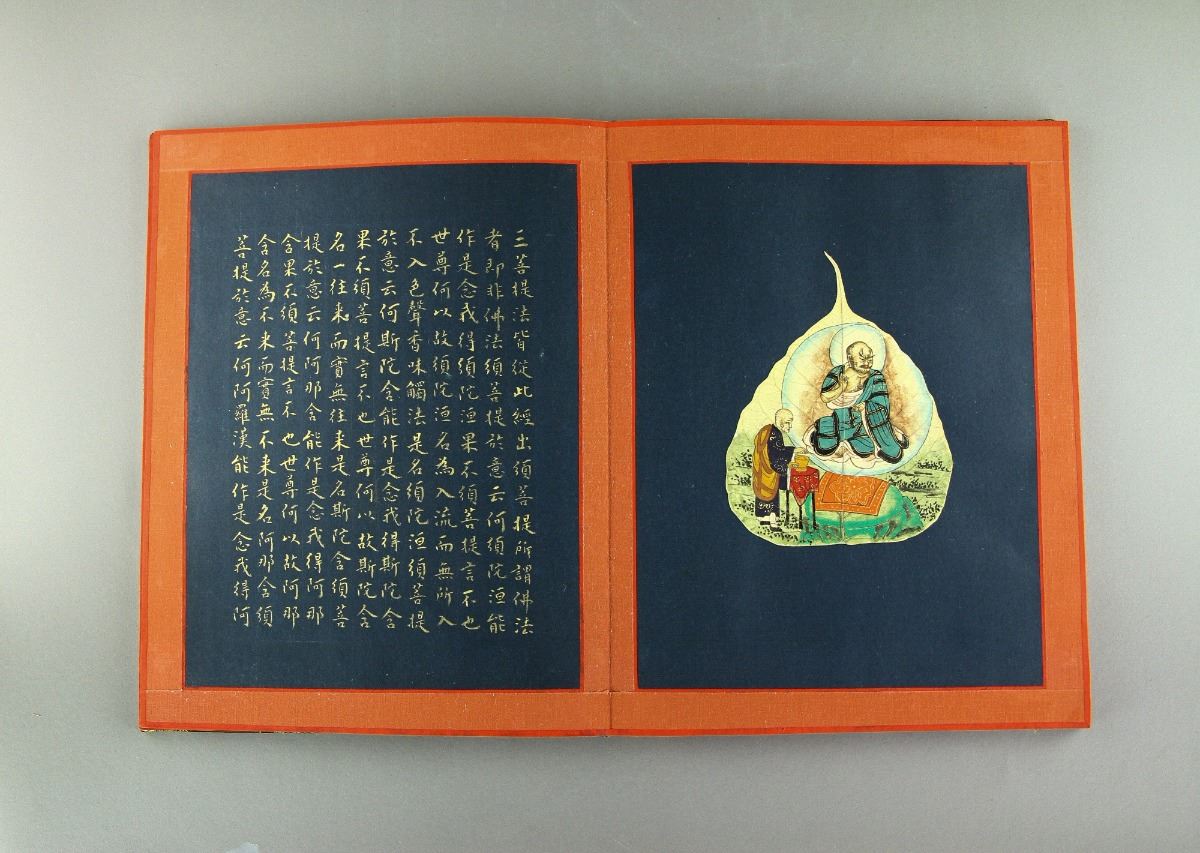 三菩提法皆從此經出須菩提所謂佛法
者即非佛法須菩提於意云何須陀洹能
作是念我得須陀洹果不須菩提言不也
世尊何以故須陀洹名為入流而無所入
不入色聲香味觸法是名須陀洹須菩提
於意云何斯陀含能作是念我得斯陀含
果不須菩提言不也世尊何以故斯陀含
名一往来而實無往来是名斯陀含須菩
提於意云何阿那含能作是念我得阿那
含果不須菩提言不也世尊何以故阿那
含名為不来而實無不来是名阿那含須
菩提於意云何阿羅漢能作是念我得阿